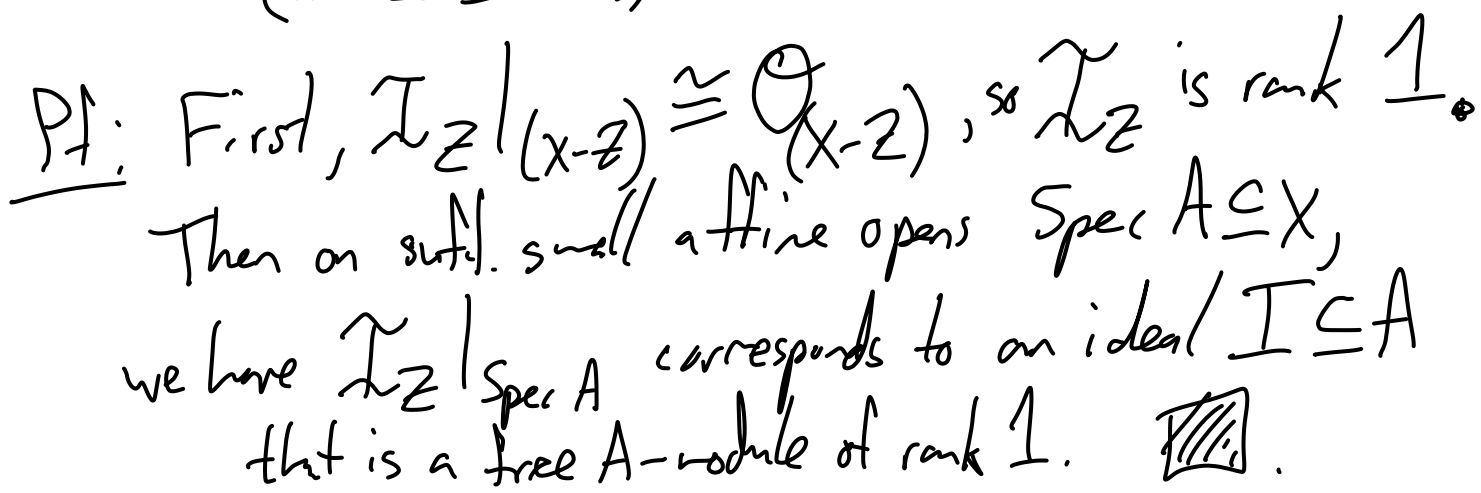 Pf: First, Ĩ_Z|_(X-Z) ≅ O_(X-Z), so Ĩ_Z is rank 1.
Then on suff. small affine opens Spec A ⊆ X,
we have Ĩ_Z|_Spec A corresponds to an ideal I ⊆ A
that is a free A-module of rank 1.